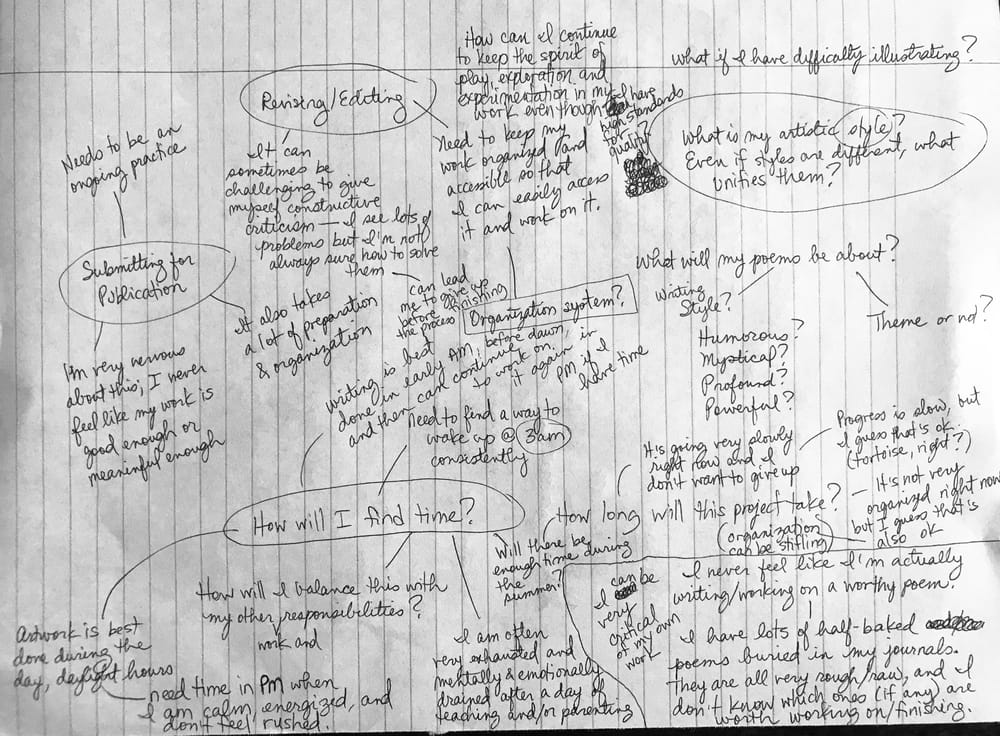 How can I continue
to keep the spirit of
play, exploration and
experimentation in my
work even though I have
high standards
for
quality
what if I have diffically illustrating?
Revising/Editing
Needs to be an
ongoing practice
It can
sometimes be
challenging to give
myself constructive
criticism — I see lots of
problems but I'm not
always sure how to solve
them
can lead
me to give up
before finishing
the process
Need to keep my
work organized and
accessible so that
I can easily access
it and work on it.
Organization system?
What is my artistic style?
Even if styles are different, what
unifies them?
Submitting for
Publication
It also takes
a lot of preparation
& organization
I'm very nervous
about this; I never
feel like my work is
good enough or
meaningful enough
What will my poems be about?
Writing
Style?
Humorous?
Mystical?
Profound?
Powerful?
Theme or no?
writing is best
done in early AM, before dawn,
and then can continue
to work on
it again in
PM if I
have time
need to find a way to
wake up @ 3am
consistently
How will I find time?
It's going very slowly
right now and I
don't want to give up
Progress is slow, but
I guess that's ok
(tortoise, right?)
How long will this project take?
— It's not very
organized right now
but I guess that's
also ok
(organization
can be stifling)
Will there be
enough time during
the
summer?
How will I balance this with
my other responsibilities?
work and
Artwork is best
done during the
day, daylight hours
need time in PM when
I am calm, energized, and
don't feel rushed.
I am often
very exhausted and
mentally & emotionally
drained after a day of
teaching and/or parenting
I can be
very
critical
of my own
work
I never feel like I'm actually
writing/working on a worthy poem.
I have lots of half-baked
poems buried in my journals.
They are all very rough/raw, and I
don't know which ones (if any) are
worth working on/finishing.